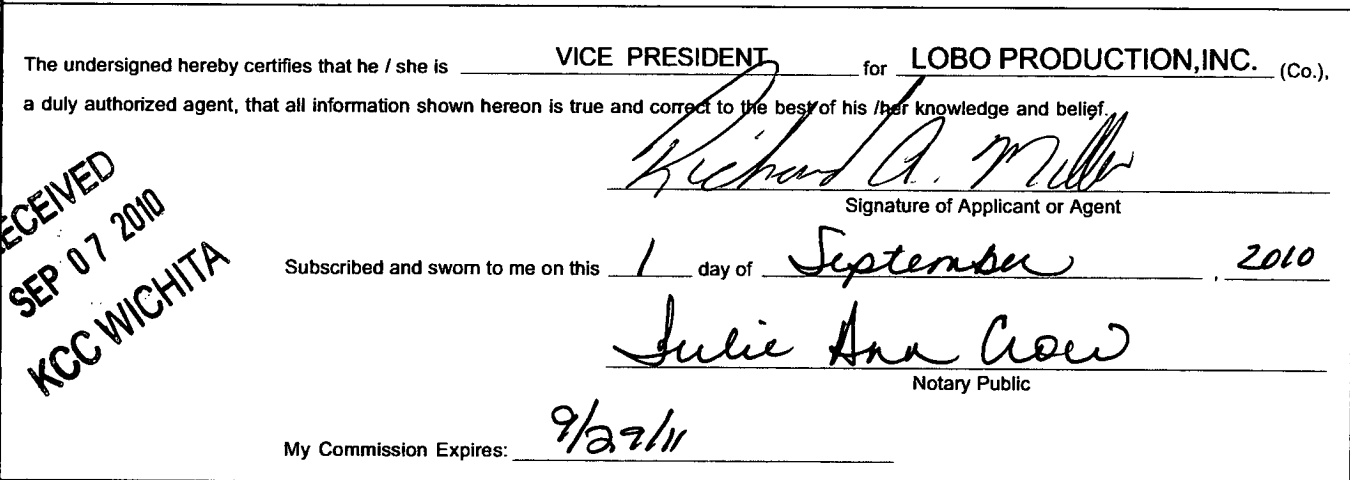 The undersigned hereby certifies that he / she is VICE PRESIDENT for LOBO PRODUCTION,INC. (Co.),
a duly authorized agent, that all information shown hereon is true and correct to the best of his /her knowledge and belief.
Richard A. Miller
Signature of Applicant or Agent
ECEIVED
SEP 07 2010
KCC WICHITA
Subscribed and sworn to me on this 1 day of September , 2010
Julie Ann Crow
Notary Public
My Commission Expires: 9/29/11